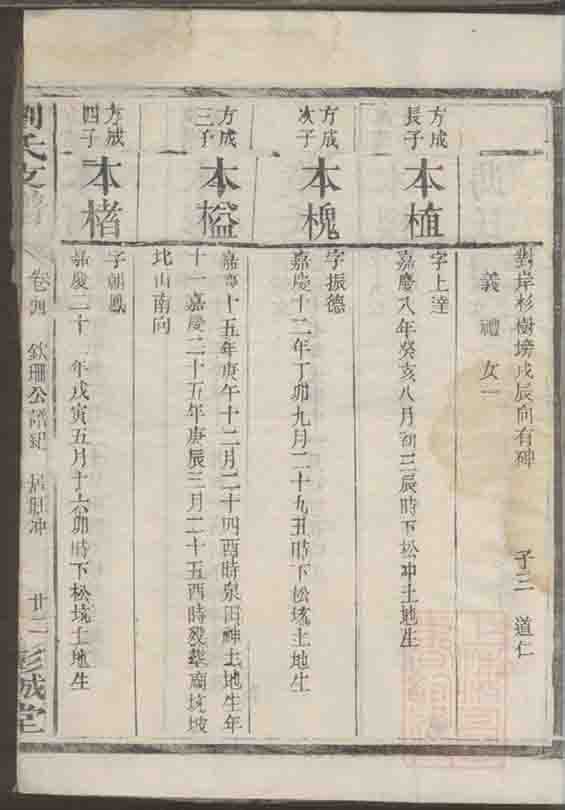 對岸杉樹塝戌辰向有碑 子三 道仁
義 禮 女一
方成
長子
本植
字上達
嘉慶八年癸亥八月初三辰時下松冲土地生
方成
次子
本槐
字振德
嘉慶十二年丁卯九月二十九丑時下松坑土地生
方成
三子
本榏
嘉慶十五年庚午十二月二十四酉時泉田神土地生年
十一嘉慶二十五年庚辰三月二十五酉時歿葬廟坑坡
北山南向
方成
四子
本楮
字朝鳳
嘉慶二十 年戊寅五月十六卯時下松坑土地生
劉氏支譜 卷四 欽珊公 紀 冲 廿二 彭城堂